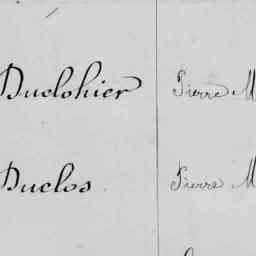 Duclohier Pierre M
Duclos Pierre M